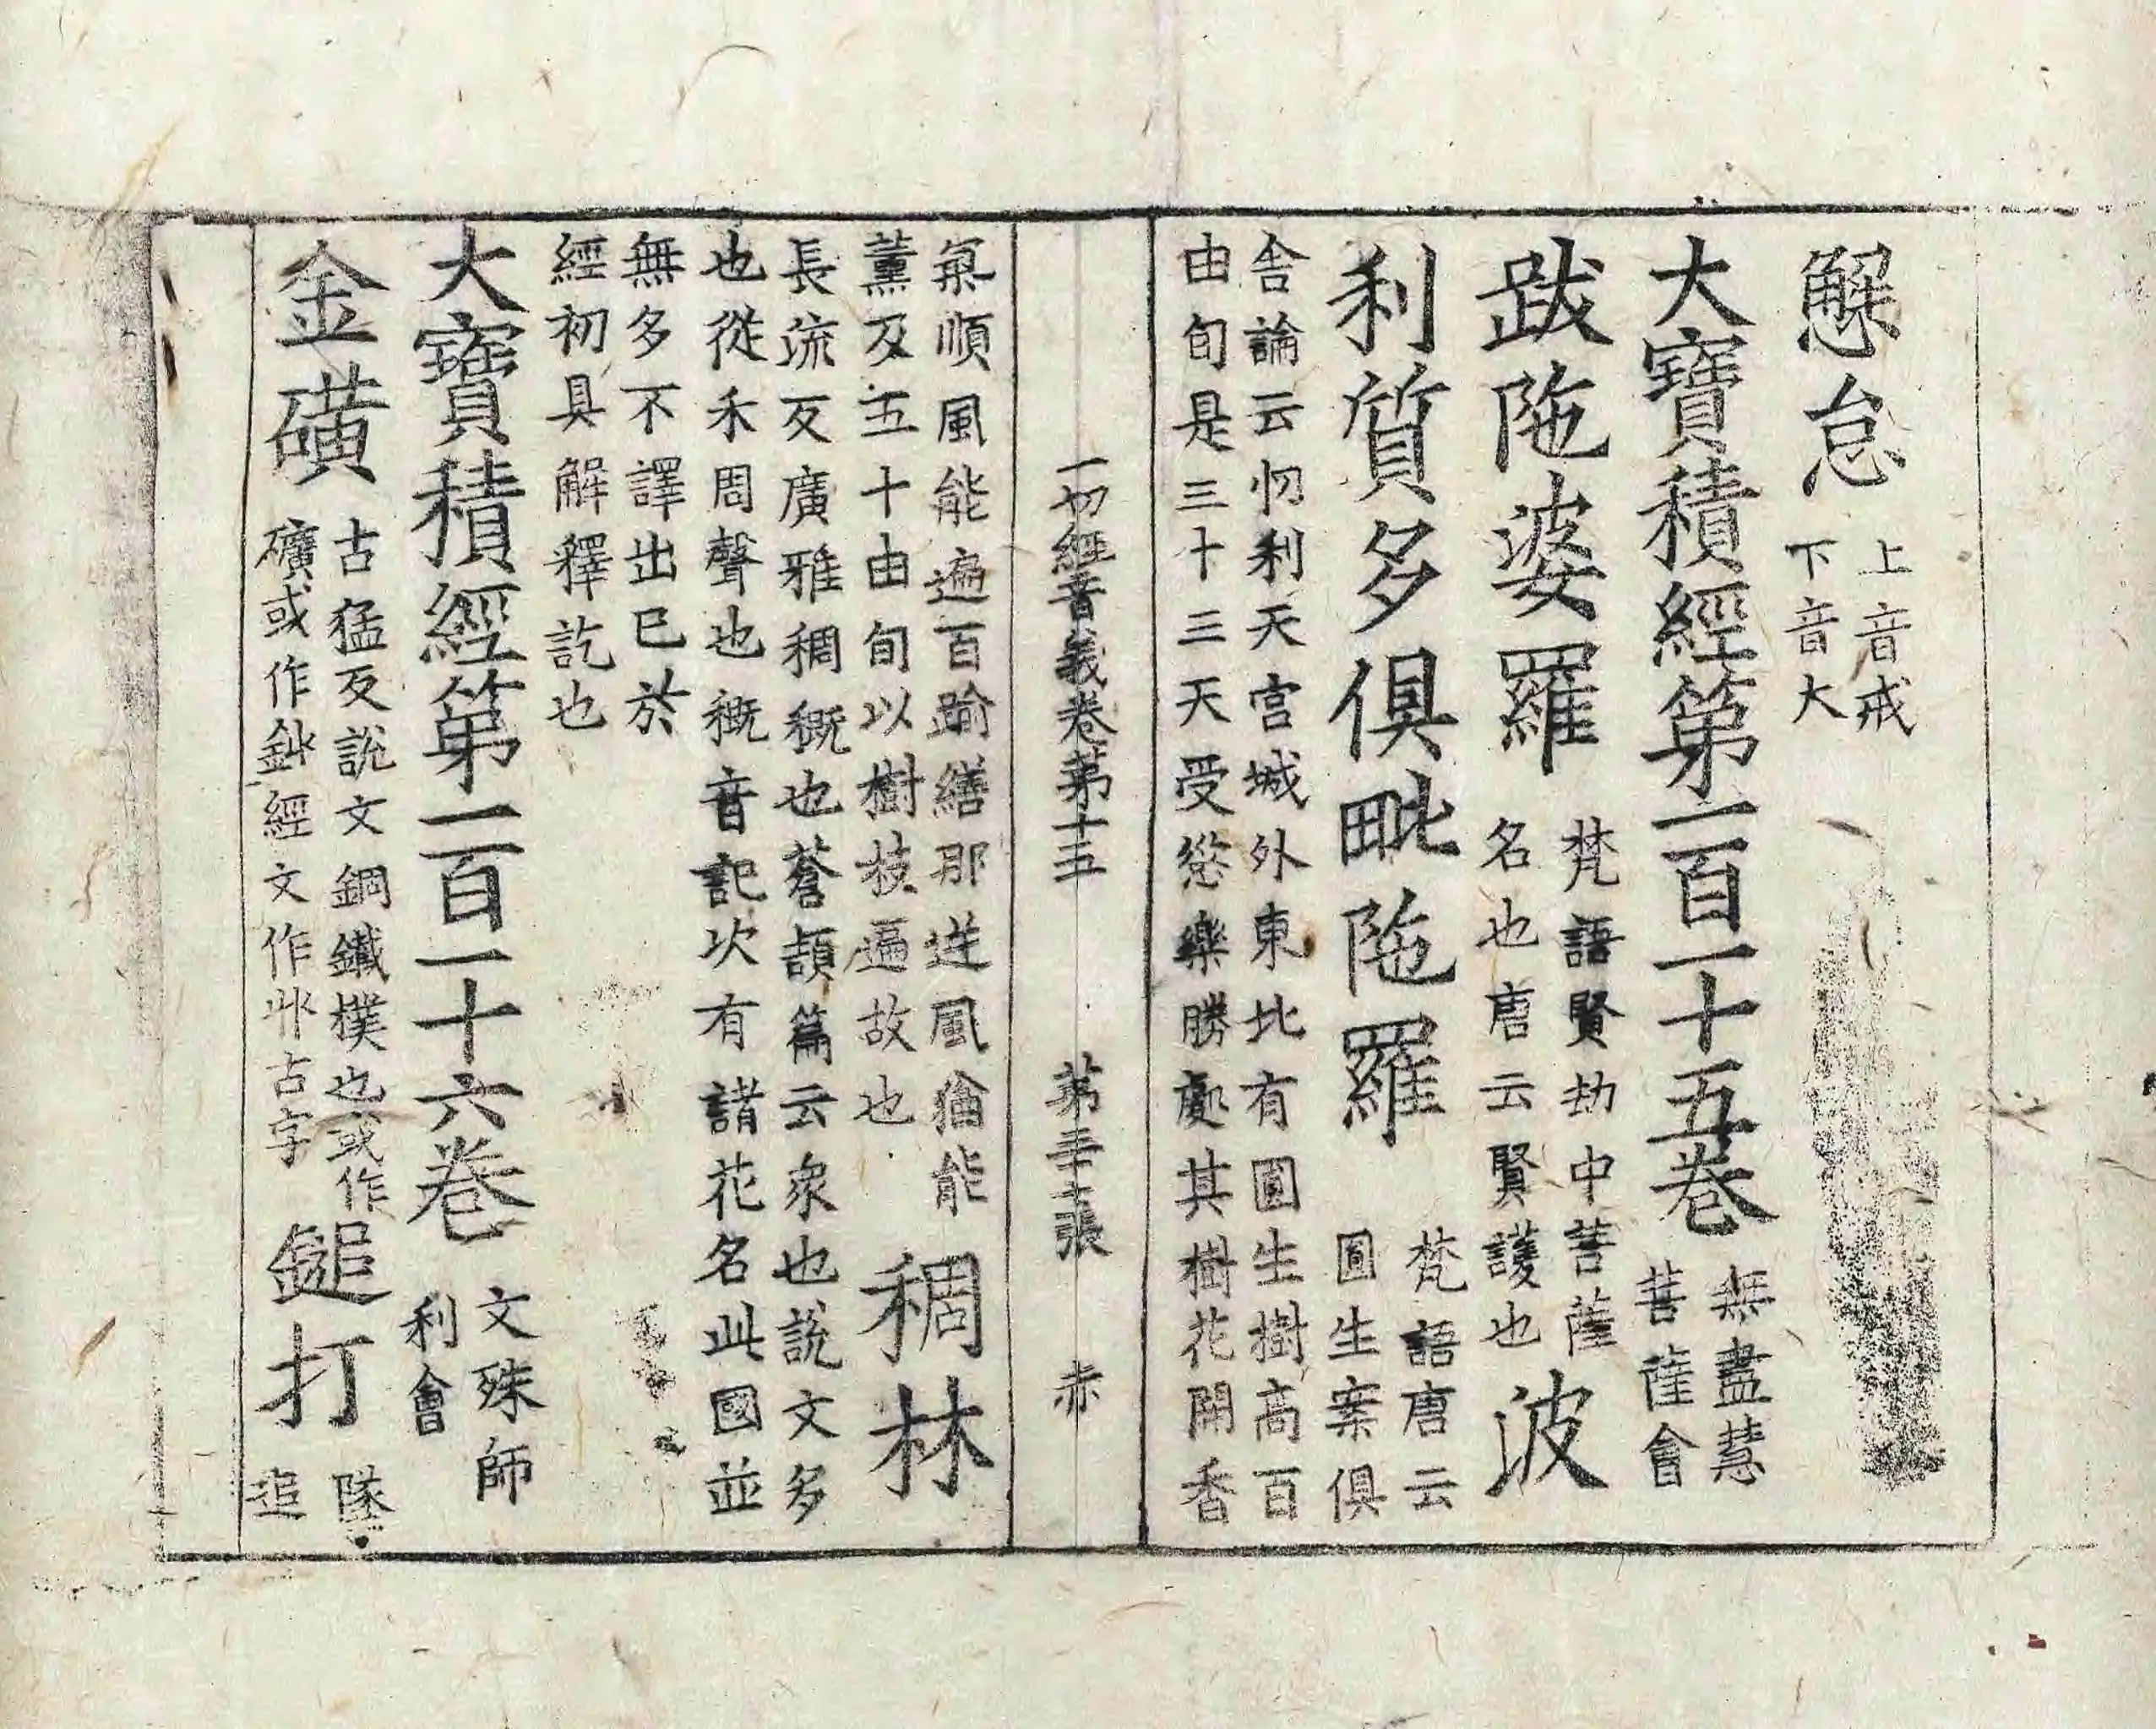 懈怠 上音戒下音大
大寶積經第一百一十五卷 無盡慧菩薩會
跋陁婆羅 梵語賢劫中菩薩名也唐云賢護也 波
利質多俱毗陁羅 梵語唐云圓生案俱
舍論云忉利天宮城外東北有圓生樹高百
由旬是三十三天受慾樂勝處其樹花開香
一切經音義卷第十五 第 張 赤
氣順風能遍百踰繕那逆風猶能
薰及五十由旬以樹枝遍故也 稠林
長流反廣雅稠穊也蒼頡篇云衆也說文多
也從禾周聲也穊音記次有諸花名此國並
無多不譯出已於
經初具解釋訖也
大寶積經第一百一十六卷 文殊師利會
金礦 古猛反說文銅鐵樸也或作礦或作鉚經文作丱古字 鎚打 墜追